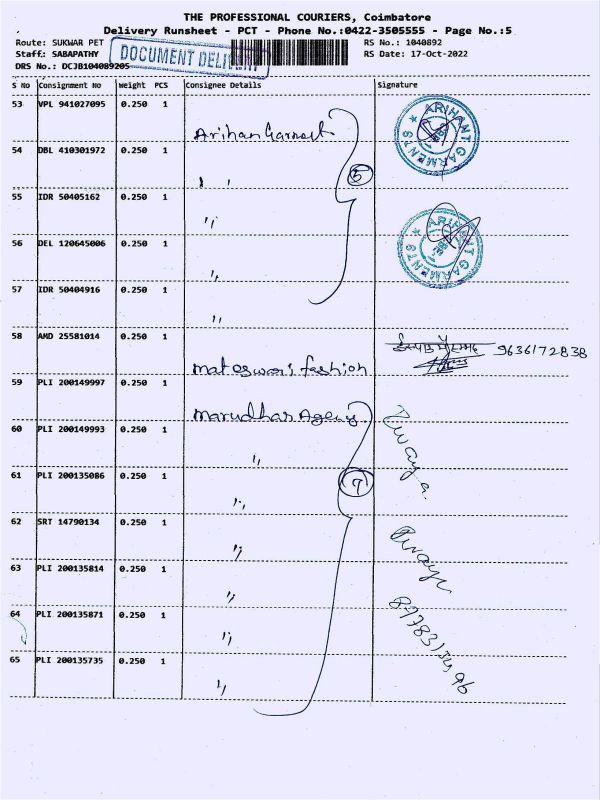 THE PROFESSIONAL COURIERS, Coimbatore
Delivery Runsheet - PCT - Phone No.:0422-3505555 - Page No.:5
Route: SUKWAR PET
RS No.: 1040892
Staff: SABAPATHY
RS Date: 17-Oct-2022
DOCUMENT DELI
DRS No.: DCJB104089205
S No Consignment No Weight PCS Consignee Details Signature
53 VPL 941027095 0.250 1
Arihan Garment
ARIHANT GARMENTS
54 DBL 410301972 0.250 1
5
55 IDR 50405162 0.250 1
ARIHANT GARMENTS
56 DEL 120645006 0.250 1
57 IDR 50404916 0.250 1
58 AMD 25581014 0.250 1
9636172838
mateswari fashion
59 PLI 200149997 0.250 1
Marudhar Agency
60 PLI 200149993 0.250 1
61 PLI 200135086 0.250 1
7
62 SRT 14790134 0.250 1
63 PLI 200135814 0.250 1
64 PLI 200135871 0.250 1
65 PLI 200135735 0.250 1